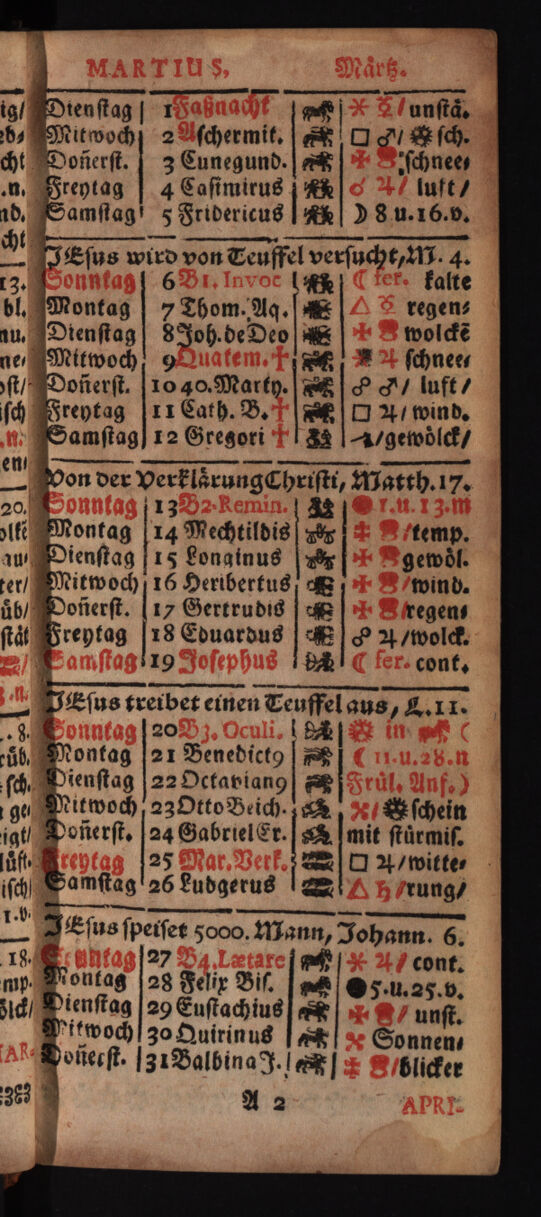 MARTIUS, Märtz.
Dienstag 1 Faßnacht ⚹ ☿/ unstä.
Mitwoch 2 Aschermit. □ ♂/ sch.
Don̄erst. 3 Cunegund. schnee⸗
Freytag 4 Casimirus ☌ ♃/ lufft/
Samstag 5 Fridericus ☽ 8 u. 16. v.
JEsus wird von Teuffel versucht, M. 4.
Sonntag 6 B1. Invoc ☾ fer. kalte
Montag 7 Thom. Aq. △ ☿ regen⸗
Dienstag 8 Joh. de Deo wolckē
Mitwoch 9 Quatem. ✝ ♃ schnee⸗
Don̄erst. 10 40. Marty. ☍ ♂/ luft/
Freytag 11 Cath. B. ✝ □ ♃/ wind.
Samstag 12 Gregori ✝ /gewölck/
Von der Verklärung Christi, Matth. 17.
Sonntag 13 B2. Remin. ● 1. u. 13. m
Montag 14 Mechtildis /temp.
Dienstag 15 Longinus gewöl.
Mitwoch 16 Heribertus /wind.
Don̄erst. 17 Gertrudis /regen⸗
Freytag 18 Eduardus ☍ ♃/wolck.
Samstag 19 Josephus ☾ fer. cont.
JEsus treibet einen Teuffel aus, L. 11.
Sonntag 20 B3. Oculi. in (
Montag 21 Benedict9 ☾ 11. u. 28. n
Dienstag 22 Octavian9 Frül. Anf.)
Mitwoch 23 Otto Beich. /schein
Don̄erst. 24 Gabriel Er. mit stürmis.
Freytag 25 Mar. Verk. □ ♃/witte⸗
Samstag 26 Ludgerus △ ♄/rung/
JEsus speiset 5000. Mann, Johann. 6.
Sonntag 27 B4. Lætare ⚹ ♃/ cont.
Montag 28 Felix Bis. ● 5. u. 25. v.
Dienstag 29 Eustachius / unst.
Mitwoch 30 Quirinus Sonnen⸗
Don̄erst. 31 Balbina J. /blicker
A 2 APRI-